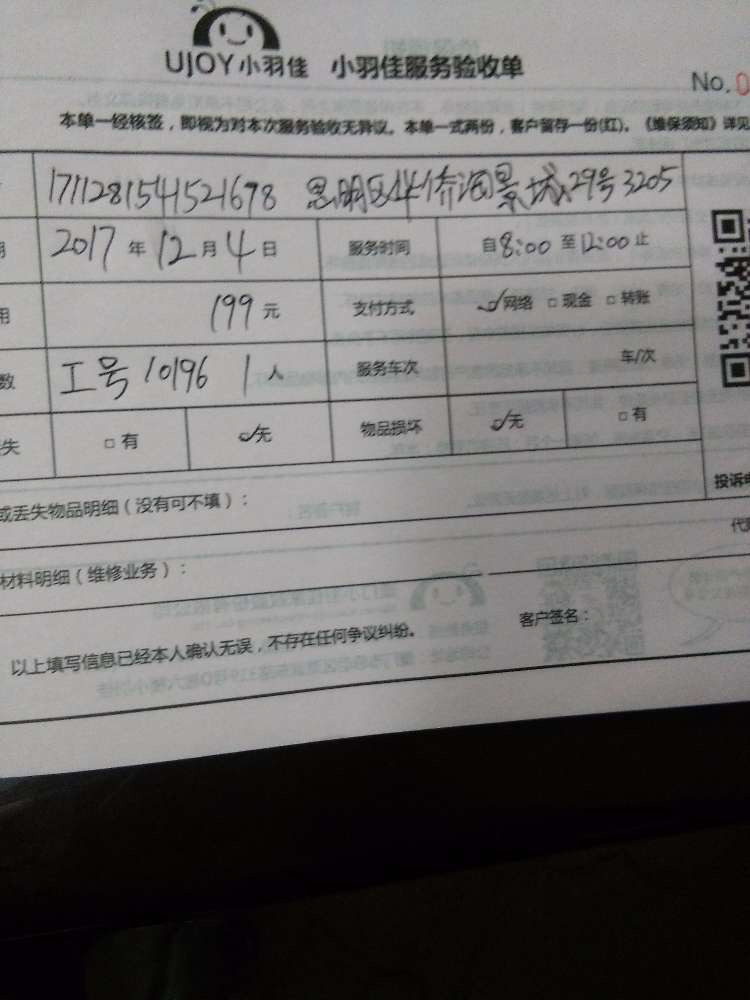 UJOY小羽佳 小羽佳服务验收单
No.0
本单一经核签，即视为对本次服务验收无异议。本单一式两份，客户留存一份(红)。《维保须知》详见
1711281541521698 思明区华侨海景城29号3205
2017年12月4日 服务时间 自8:00至12:00止
用 199元 支付方式 ☑网络 □现金 □转账
数 工号10196 1人 服务车次 车/次
失 □有 ☑无 物品损坏 ☑无 □有
投诉电
或丢失物品明细（没有可不填）：
材料明细（维修业务）：
以上填写信息已经本人确认无误，不存在任何争议纠纷。 客户签名：